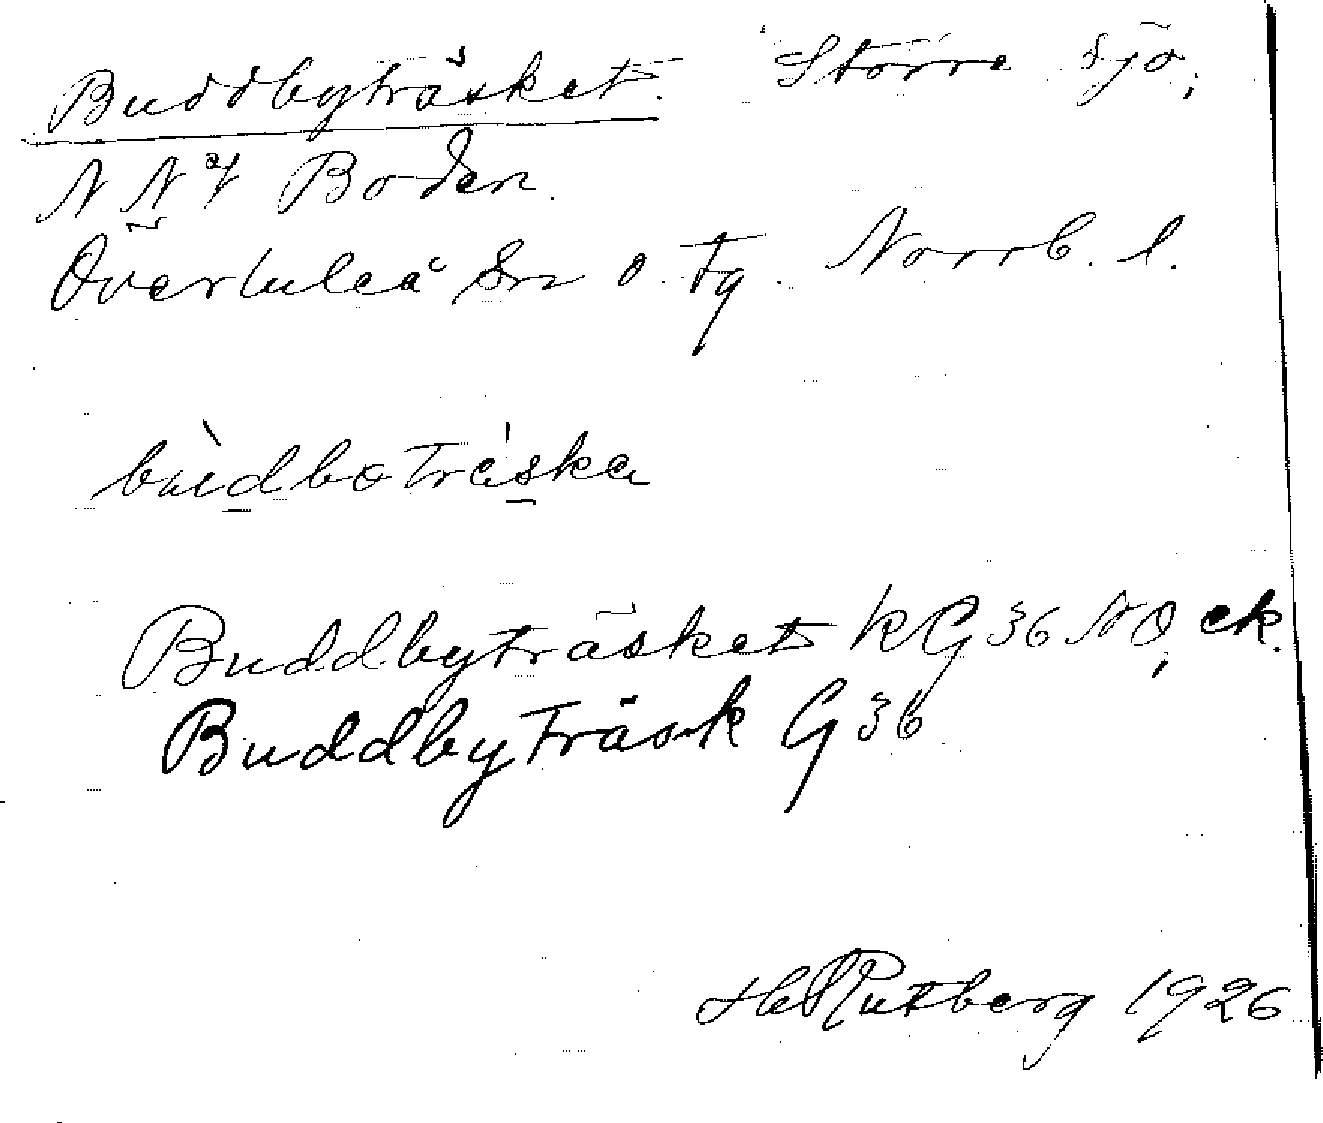 Buddbyträsket. Större sjö,
N N af Boden.
Överluleå sn o. tg. Norrb. l.
bùdbotráska
Buddbyträsket KG 36 NO, ek.
Buddbyträsk G 36
H Rutberg 1926